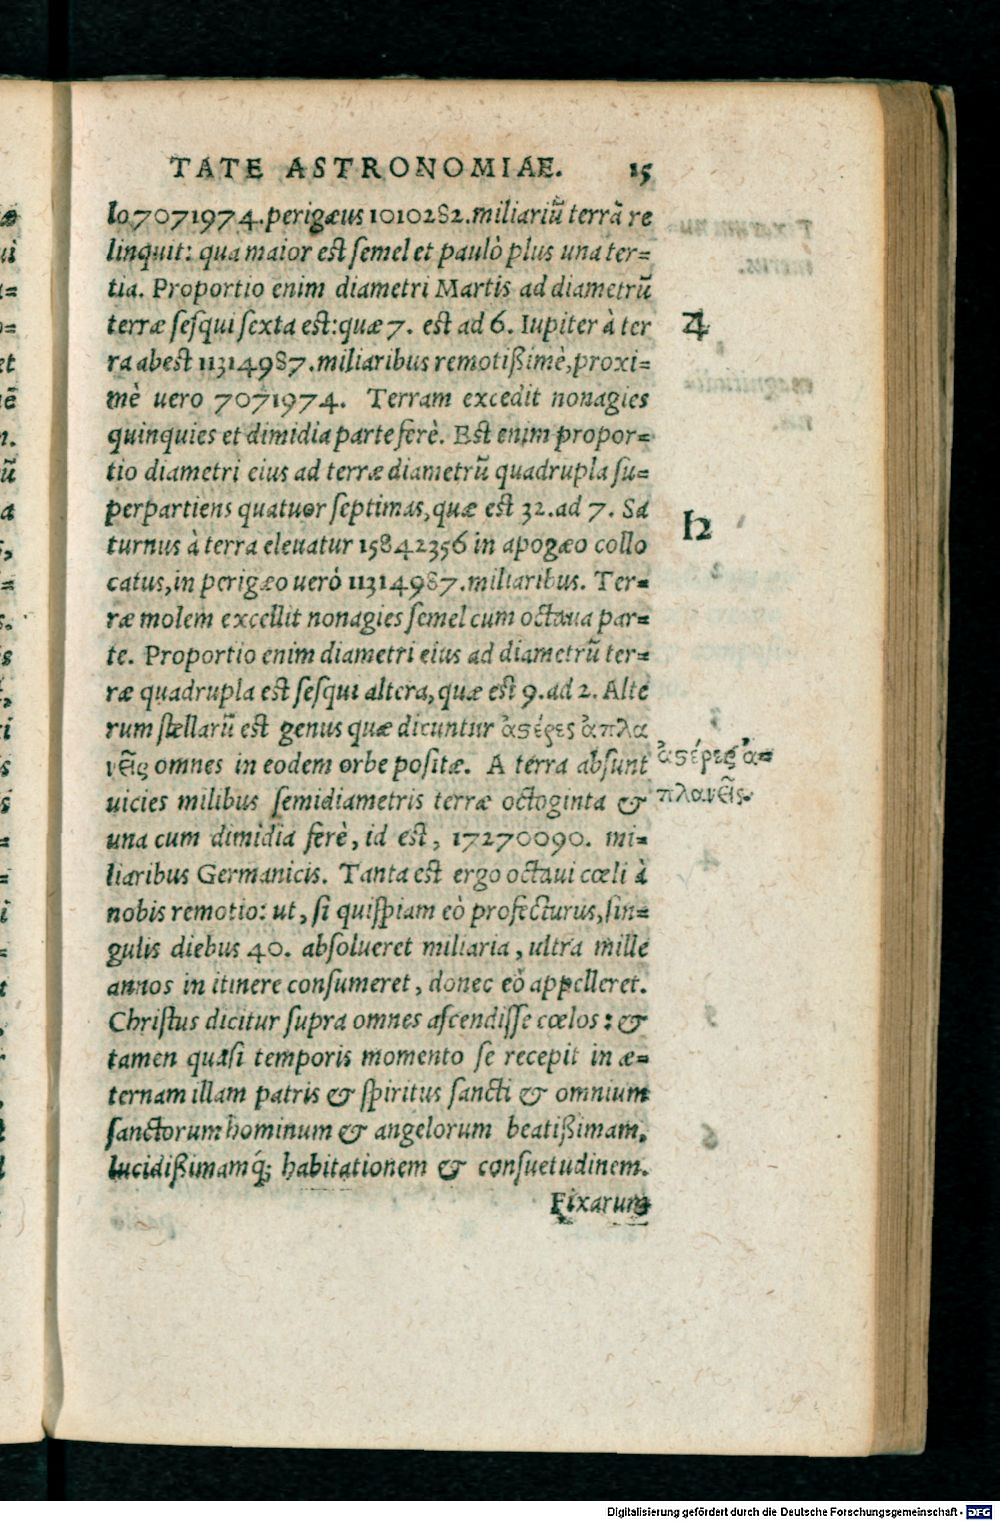 TATE ASTRONOMIAE. 15
lo 7071974. perigæus 1010282. miliariũ terrã re
linquit: qua maior est semel et paulò plus una ter=
tia. Proportio enim diametri Martis ad diametrũ
terræ sesqui sexta est: quæ 7. est ad 6. Iupiter à ter
♃
ra abest 11314987. miliaribus remotißimè, proxi=
mè uero 7071974. Terram excedit nonagies
quinquies et dimidia parte ferè. Est enim propor=
tio diametri eius ad terræ diametrũ quadrupla su=
perpartiens quatuor septimas, quæ est 32. ad 7. Sa
♄
turnus à terra eleuatur 15842356 in apogæo collo
catus, in perigæo uerò 11314987. miliaribus. Ter=
ræ molem excellit nonagies semel cum octaua par=
te. Proportio enim diametri eius ad diametrũ ter=
ræ quadrupla est sesqui altera, quæ est 9. ad 2. Alte
rum stellarũ est genus quæ dicuntur ἀστέρες ἀπλα
νεῖς omnes in eodem orbe positæ. A terra absunt
ἀστέρες ἀ=
πλανεῖς.
uicies milibus semidiametris terræ octoginta &
una cum dimidia ferè, id est, 17270090. mi=
liaribus Germanicis. Tanta est ergo octaui cœli à
nobis remotio: ut, si quispiam eò profecturus, sin=
gulis diebus 40. absolueret miliaria, ultra mille
annos in itinere consumeret, donec eò appelleret.
Christus dicitur supra omnes ascendisse cœlos: &
tamen quasi temporis momento se recepit in æ=
ternam illam patris & spiritus sancti & omnium
sanctorum hominum & angelorum beatißimam,
lucidißimamq́; habitationem & consuetudinem.
Fixarum
Digitalisierung gefördert durch die Deutsche Forschungsgemeinschaft - DFG